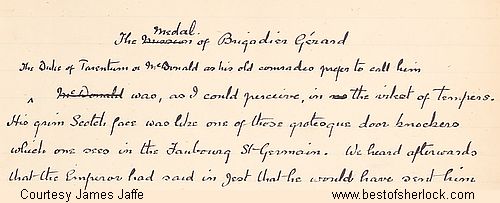 Medal
The Mission of Brigadier Gérard
The Duke of Tarentum or McDonald as his old comrades prefer to call him
^ McDonald was, as I could perceive, in the vilest of tempers.
His grim Scotch face was like one of those grotesque door knockers
which one sees in the Faubourg St-Germain. We heard afterwards
that the Emperor had said in jest that he would have sent him
Courtesy James Jaffe www.bestofsherlock.com